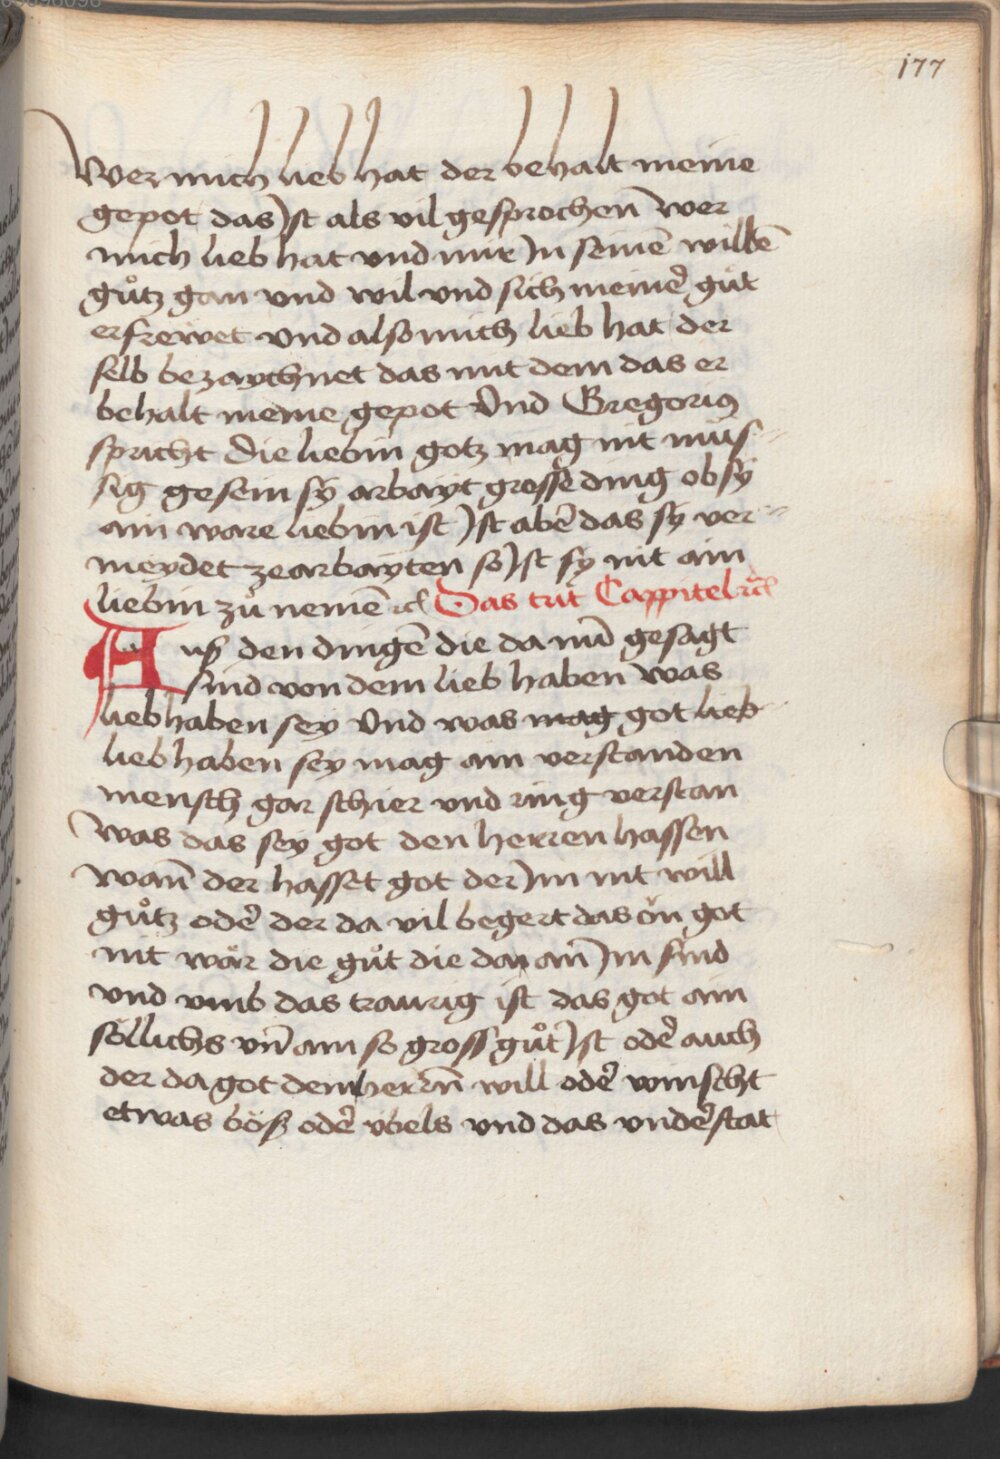 177
Wer mich lieb hat der behalt meine
gepot das Jst als vil gesprochen̄ wer
mich lieb hat vnd mir Jn seinē willē
gůtz gan vnd wil vnd sich meinē gůt
erfrewet vnd also mich lieb hat der
selb bezaychnet das mit dem das er
behalt meine gepot Vnd Gregorius
spricht Die liebin gotz mag nit müs-
sig gesein sÿ arbaÿt grosse ding ob sÿ
ain ware liebin ist Jst abe᷑ das sÿ ver-
meÿdet ze arbaÿten so Jst sÿ nit ain
liebin zů nemē ⁊c̄ Das trit Cappitel ⁊c̄
Auß den dingē die da nū gesagt
sind von dem lieb haben was
lieb haben seÿ Vnd was mag got lieb
lieb haben seÿ mag ain verstanden
mensch gar schier vnd ring verstan
Was das seÿ got den herren hassen
wan̄ der hasset got der Jm nit will
gůtz ode᷑ der da vil begert das ön got
nit wär die gůt die da an̄ Jm sind
vnd vmb das traurig ist das got ain
söllichs vn̄ ain so gross gůt Jst ode᷑ auch
der da got dem herrn̄ will ode᷑ winscht
etwas böß ode᷑ vbels vnd das vnde᷑stat